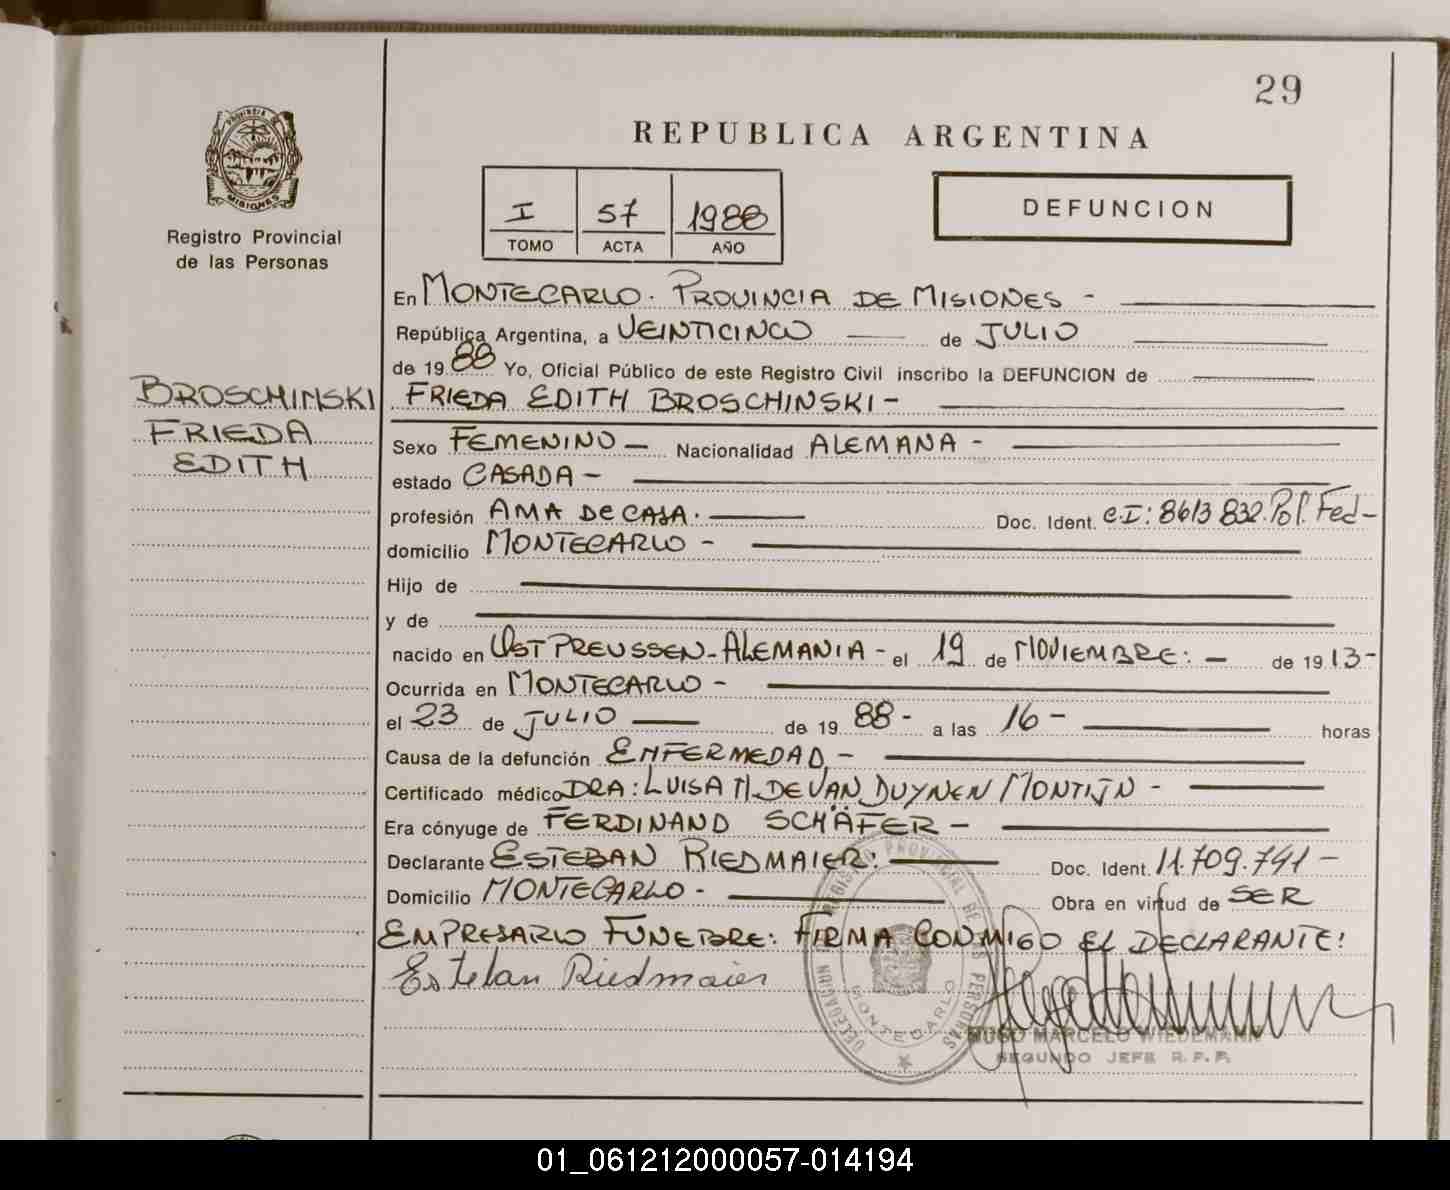 29
REPUBLICA ARGENTINA
PROVINCIA DE
MISIONES
Registro Provincial
de las Personas
I 57 1988
TOMO ACTA AÑO
DEFUNCION
En MONTECARLO. PROVINCIA DE MISIONES -
República Argentina, a VEINTICINCO de JULIO
de 1988 Yo, Oficial Público de este Registro Civil inscribo la DEFUNCION de
BROSCHINSKI
FRIEDA
EDITH
FRIEDA EDITH BROSCHINSKI -
Sexo FEMENINO - Nacionalidad ALEMANA -
estado CASADA -
profesión AMA DE CASA. Doc. Ident. C.I: 8613 832. Pol. Fed -
domicilio MONTECARLO -
Hijo de
y de
nacido en OST PREUSSEN - ALEMANIA - el 19 de NOVIEMBRE: - de 1913 -
Ocurrida en MONTECARLO -
el 23 de JULIO de 1988 - a las 16 - horas
Causa de la defunción ENFERMEDAD -
Certificado médico DRA: LUISA H. DE VAN DUYNEN MONTIJN -
Era cónyuge de FERDINAND SCHÄFER -
Declarante ESTEBAN RIEDMAIER: Doc. Ident. 11.709.791 -
Domicilio MONTECARLO - Obra en virtud de SER
EMPRESARIO FUNEBRE: FIRMA CONMIGO EL DECLARANTE:
Esteban Riedmaier
DELEGACION REGISTRO PROVINCIAL DE LAS PERSONAS
MONTECARLO
HUGO MARCELO WIEDEMANN
SEGUNDO JEFE R.P.P.
01_061212000057-014194